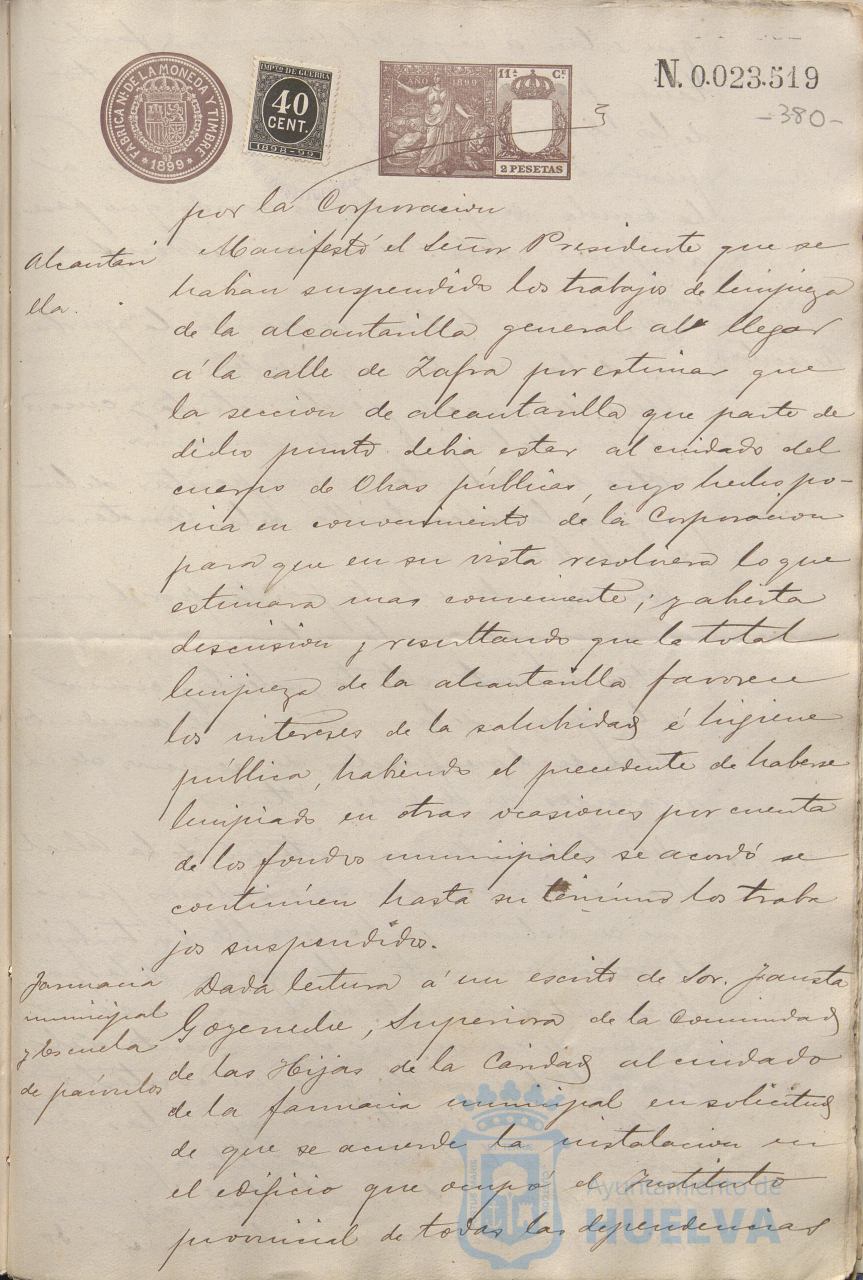 FÁBRICA Nl. DE LA MONEDA Y TIMBRE
* 1899 *
IMPTO DE GUERRA
40
CENT.
1898-99
AÑO 1899
11ª Cº
2 PESETAS
N. 0.023.519
-380-
por la Corporacion
Alcantari
lla.
Manifestó el Señor Presidente que se
habian suspendido los trabajos de limpieza
de la alcantarilla general al llegar
á la calle de Zafra por estimar que
la seccion de alcantarilla que parte de
dicho punto debia estar al cuidado del
cuerpo de Obras públicas, cuyo hecho po-
nia en conocimiento de la Corporacion
para que en su vista resolviera lo que
estimara mas conveniente; y abierta
discusion y resultando que la total
limpieza de la alcantarilla favorece
los intereses de la salubridad é higiene
pública, habiendo el precedente de haberse
limpiado en otras ocasiones por cuenta
de los fondos municipales se acordó se
continúen hasta su término los traba
jos suspendidos.
Farmacia
municipal
y Escuela
de párvulos
Dada lectura á un escrito de Sor. Fausta
Goyeneche, Superiora de la Comunidad
de las Hijas de la Caridad al cuidado
de la farmacia municipal en solicitud
de que se acuerde la instalacion en
el edificio que ocupó el Instituto
provincial de todas las dependencias
Ayuntamiento de
HUELVA